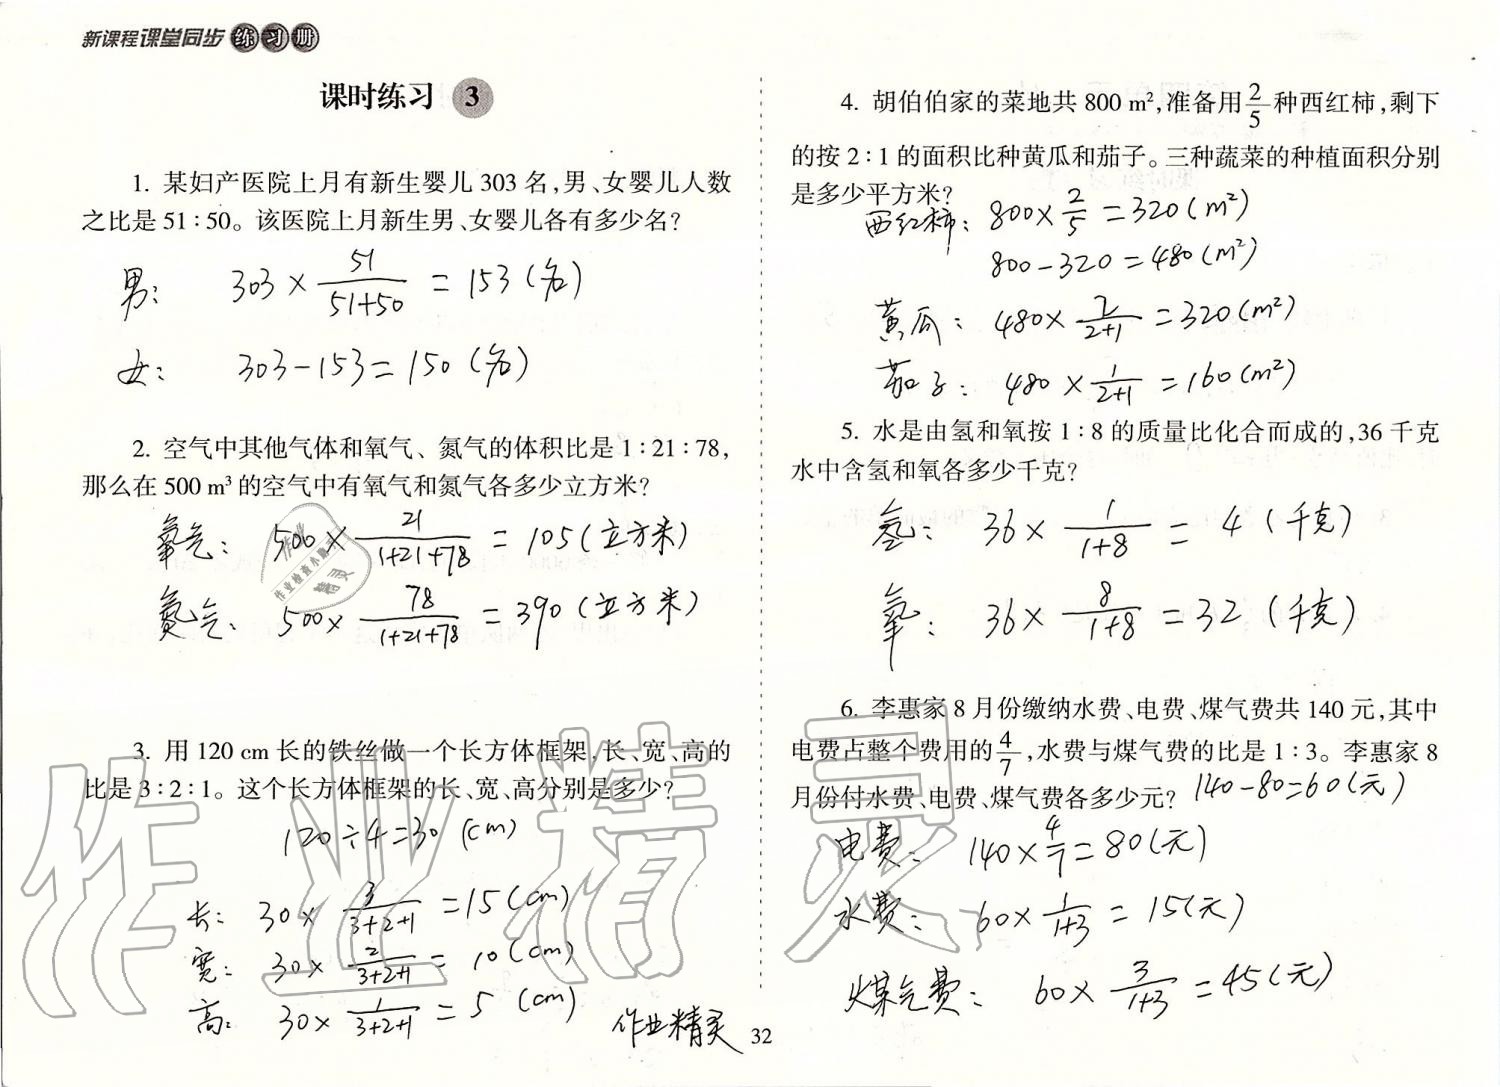 新课程课堂同步练习册
课时练习 3
1. 某妇产医院上月有新生婴儿 303 名,男、女婴儿人数
之比是 51∶50。该医院上月新生男、女婴儿各有多少名?
男: 303 × 51/(51+50) = 153 (名)
女: 303-153=150 (名)
2. 空气中其他气体和氧气、氮气的体积比是 1∶21∶78,
那么在 500 m³ 的空气中有氧气和氮气各多少立方米?
氧气: 500 × 21/(1+21+78) = 105 (立方米)
氮气: 500 × 78/(1+21+78) = 390 (立方米)
3. 用 120 cm 长的铁丝做一个长方体框架,长、宽、高的
比是 3∶2∶1。这个长方体框架的长、宽、高分别是多少?
120÷4=30 (cm)
长: 30 × 3/(3+2+1) = 15 (cm)
宽: 30 × 2/(3+2+1) = 10 (cm)
高: 30 × 1/(3+2+1) = 5 (cm)
作业精灵
32
4. 胡伯伯家的菜地共 800 m²,准备用 2/5 种西红柿,剩下
的按 2∶1 的面积比种黄瓜和茄子。三种蔬菜的种植面积分别
是多少平方米?
西红柿: 800 × 2/5 = 320 (m²)
800-320=480 (m²)
黄瓜: 480 × 2/(2+1) = 320 (m²)
茄子: 480 × 1/(2+1) = 160 (m²)
5. 水是由氢和氧按 1∶8 的质量比化合而成的,36 千克
水中含氢和氧各多少千克?
氢: 36 × 1/(1+8) = 4 (千克)
氧: 36 × 8/(1+8) = 32 (千克)
6. 李惠家 8 月份缴纳水费、电费、煤气费共 140 元,其中
电费占整个费用的 4/7,水费与煤气费的比是 1∶3。李惠家 8
月份付水费、电费、煤气费各多少元? 140-80=60 (元)
电费: 140 × 4/7 = 80 (元)
水费: 60 × 1/(1+3) = 15 (元)
煤气费: 60 × 3/(1+3) = 45 (元)
作业精灵